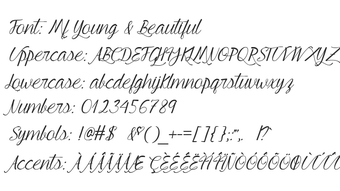 Font: Mf Young & Beautiful
Uppercase: ABCDEFGHIJKLMNOPQRSTUVWXYZ
Lowercase: abcdefghijklmnopqrstuvwxyz
Numbers: 0123456789
Symbols: !@#$ &*()_+-=[]{};:"',. |?
Accents: